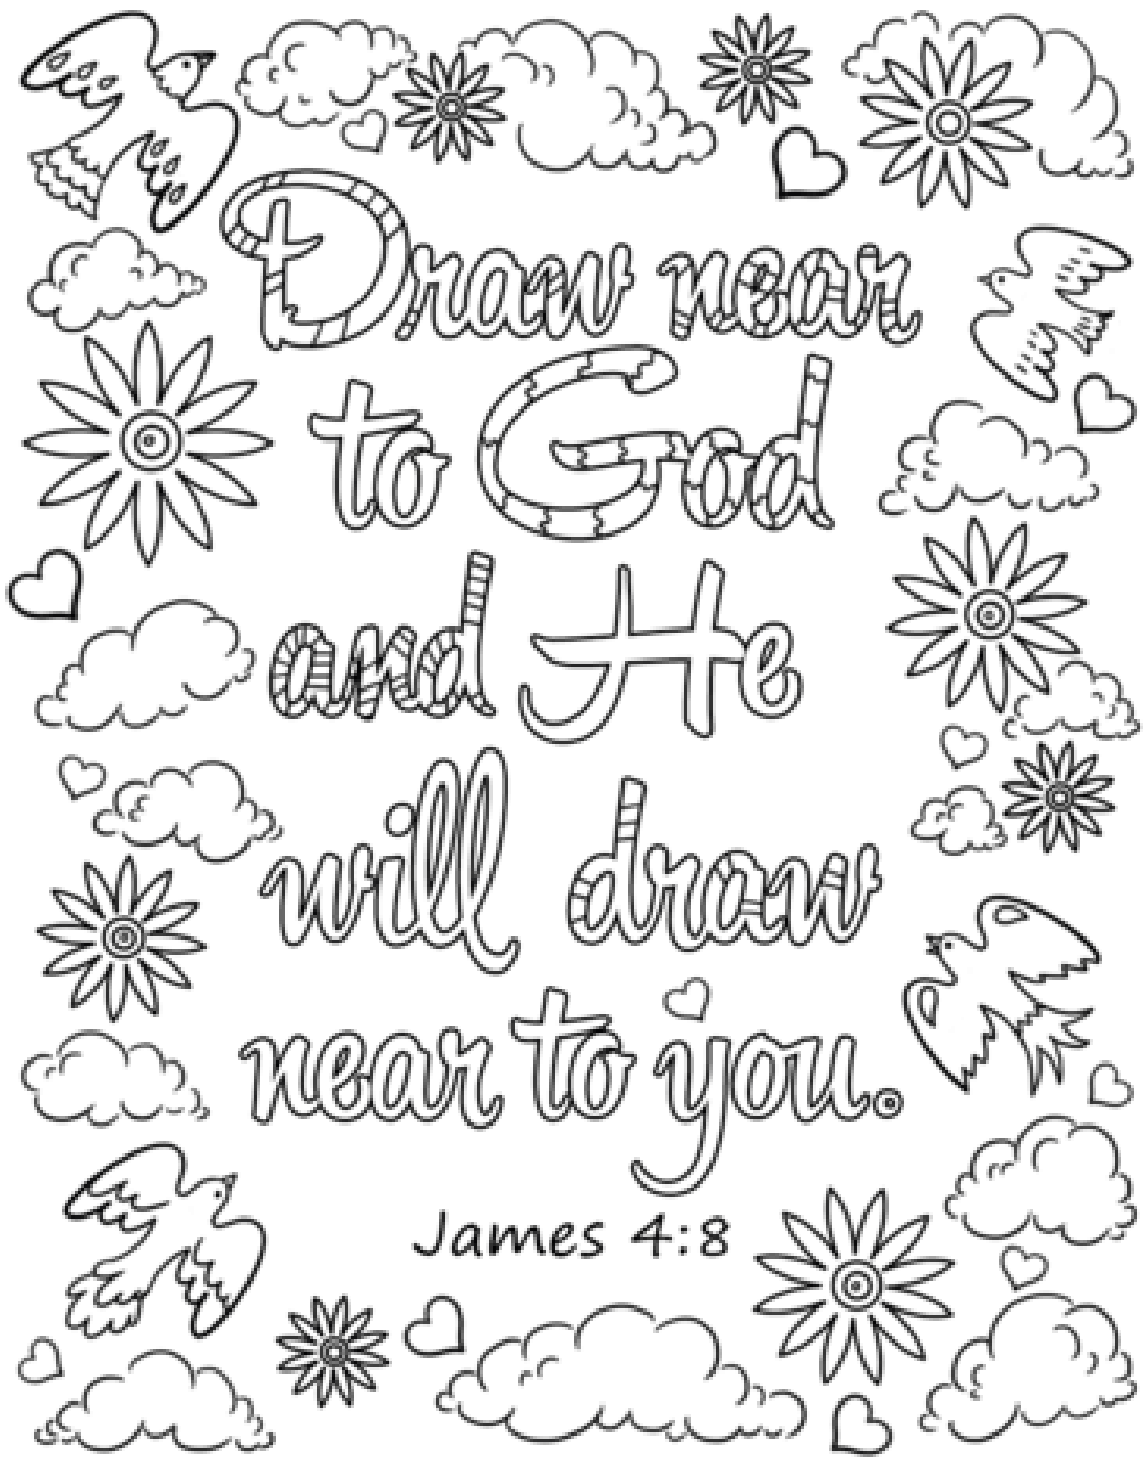 Draw near
to God
and He
will draw
near to you.
James 4:8